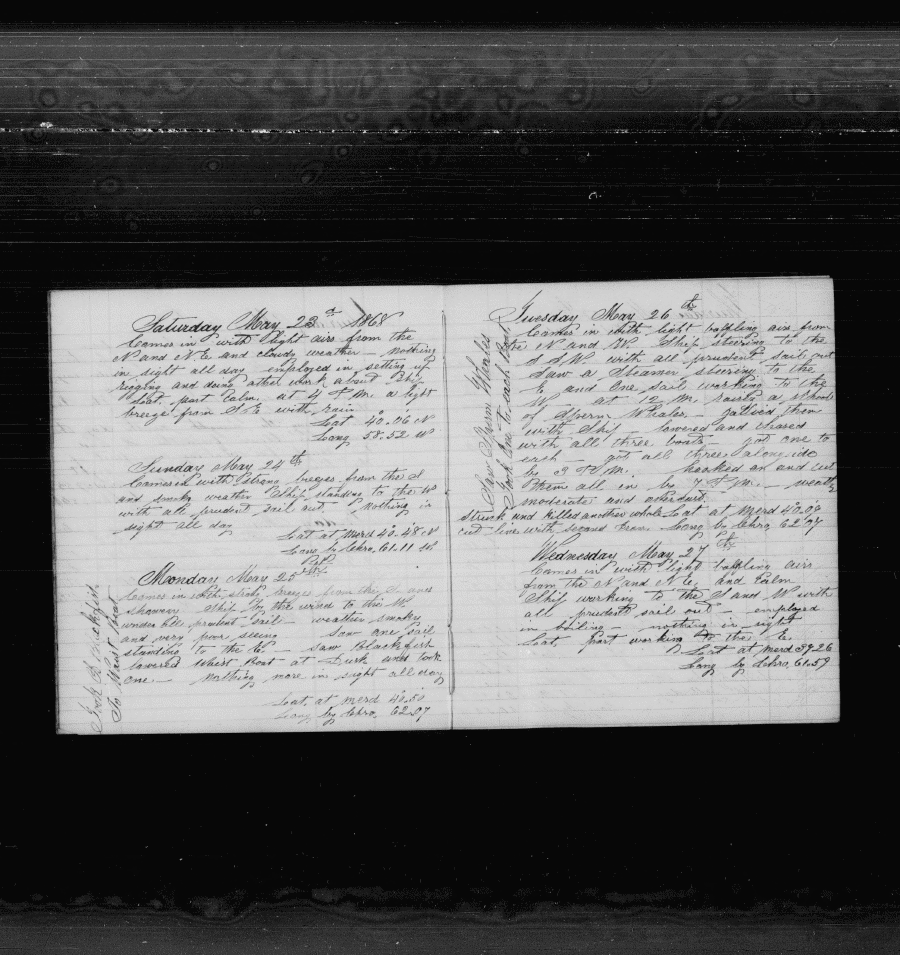 Saturday May 23d 1868
Comes in with light airs from the
N and NE and cloudy weather - nothing
in sight all day employed in setting up
rigging and doing other work about Ship
Lat. part calm. at 4 P.M. a light
breeze from S.E with rain
Lat 40.06 N
Long 58.52 W
Sunday May 24th
Comes in with strong breezes from the S
and smoky weather Ship standing to the W
with all prudent sail out. Nothing in
sight all day
Lat at Merd 40.48 N
Long by Chro, 61.11 W
Monday May 25th
Comes in with breezes from the S and
showery Ship by the wind to the W.
under all prudent sail - weather smoky
and very poor seeing saw one sail
standing to the E. - saw Blackfish
lowered Waist Boat at Dusk and took
one. - nothing more in sight all day
Lat. at Merd 40.50
Long by Chro, 62.07
Took Blackfish
To Waist Boat
Tuesday May 26th
Comes in with light baffling airs from
the N and W. Ship steering to the
S S W with all prudent sail out
Saw a Steamer steering to the
E and One sail working to the
W - at 12 M. raised a school
of Sperm Whales - gallied them
with Ship - lowered and chased
with all three boats - got one to
each - got all three alongside
by 3 P.M. hooked on and cut
them all in by 7 P.M. - weather
moderate and overcast.
Struck and killed another whale Lat at merd 40.09
cut line with second Iron. Long by Chro, 62.07
Saw Sperm Whales
Took One to each Boat
Wednesday May 27th
Comes in with light baffling airs
from the N and N E, and Calm
Ship working to the S and W with
all prudent sail out - employed
in boiling - nothing in sight
Lat, part working to the E.
Lat at merd 39.26
Long by Chro, 61.59